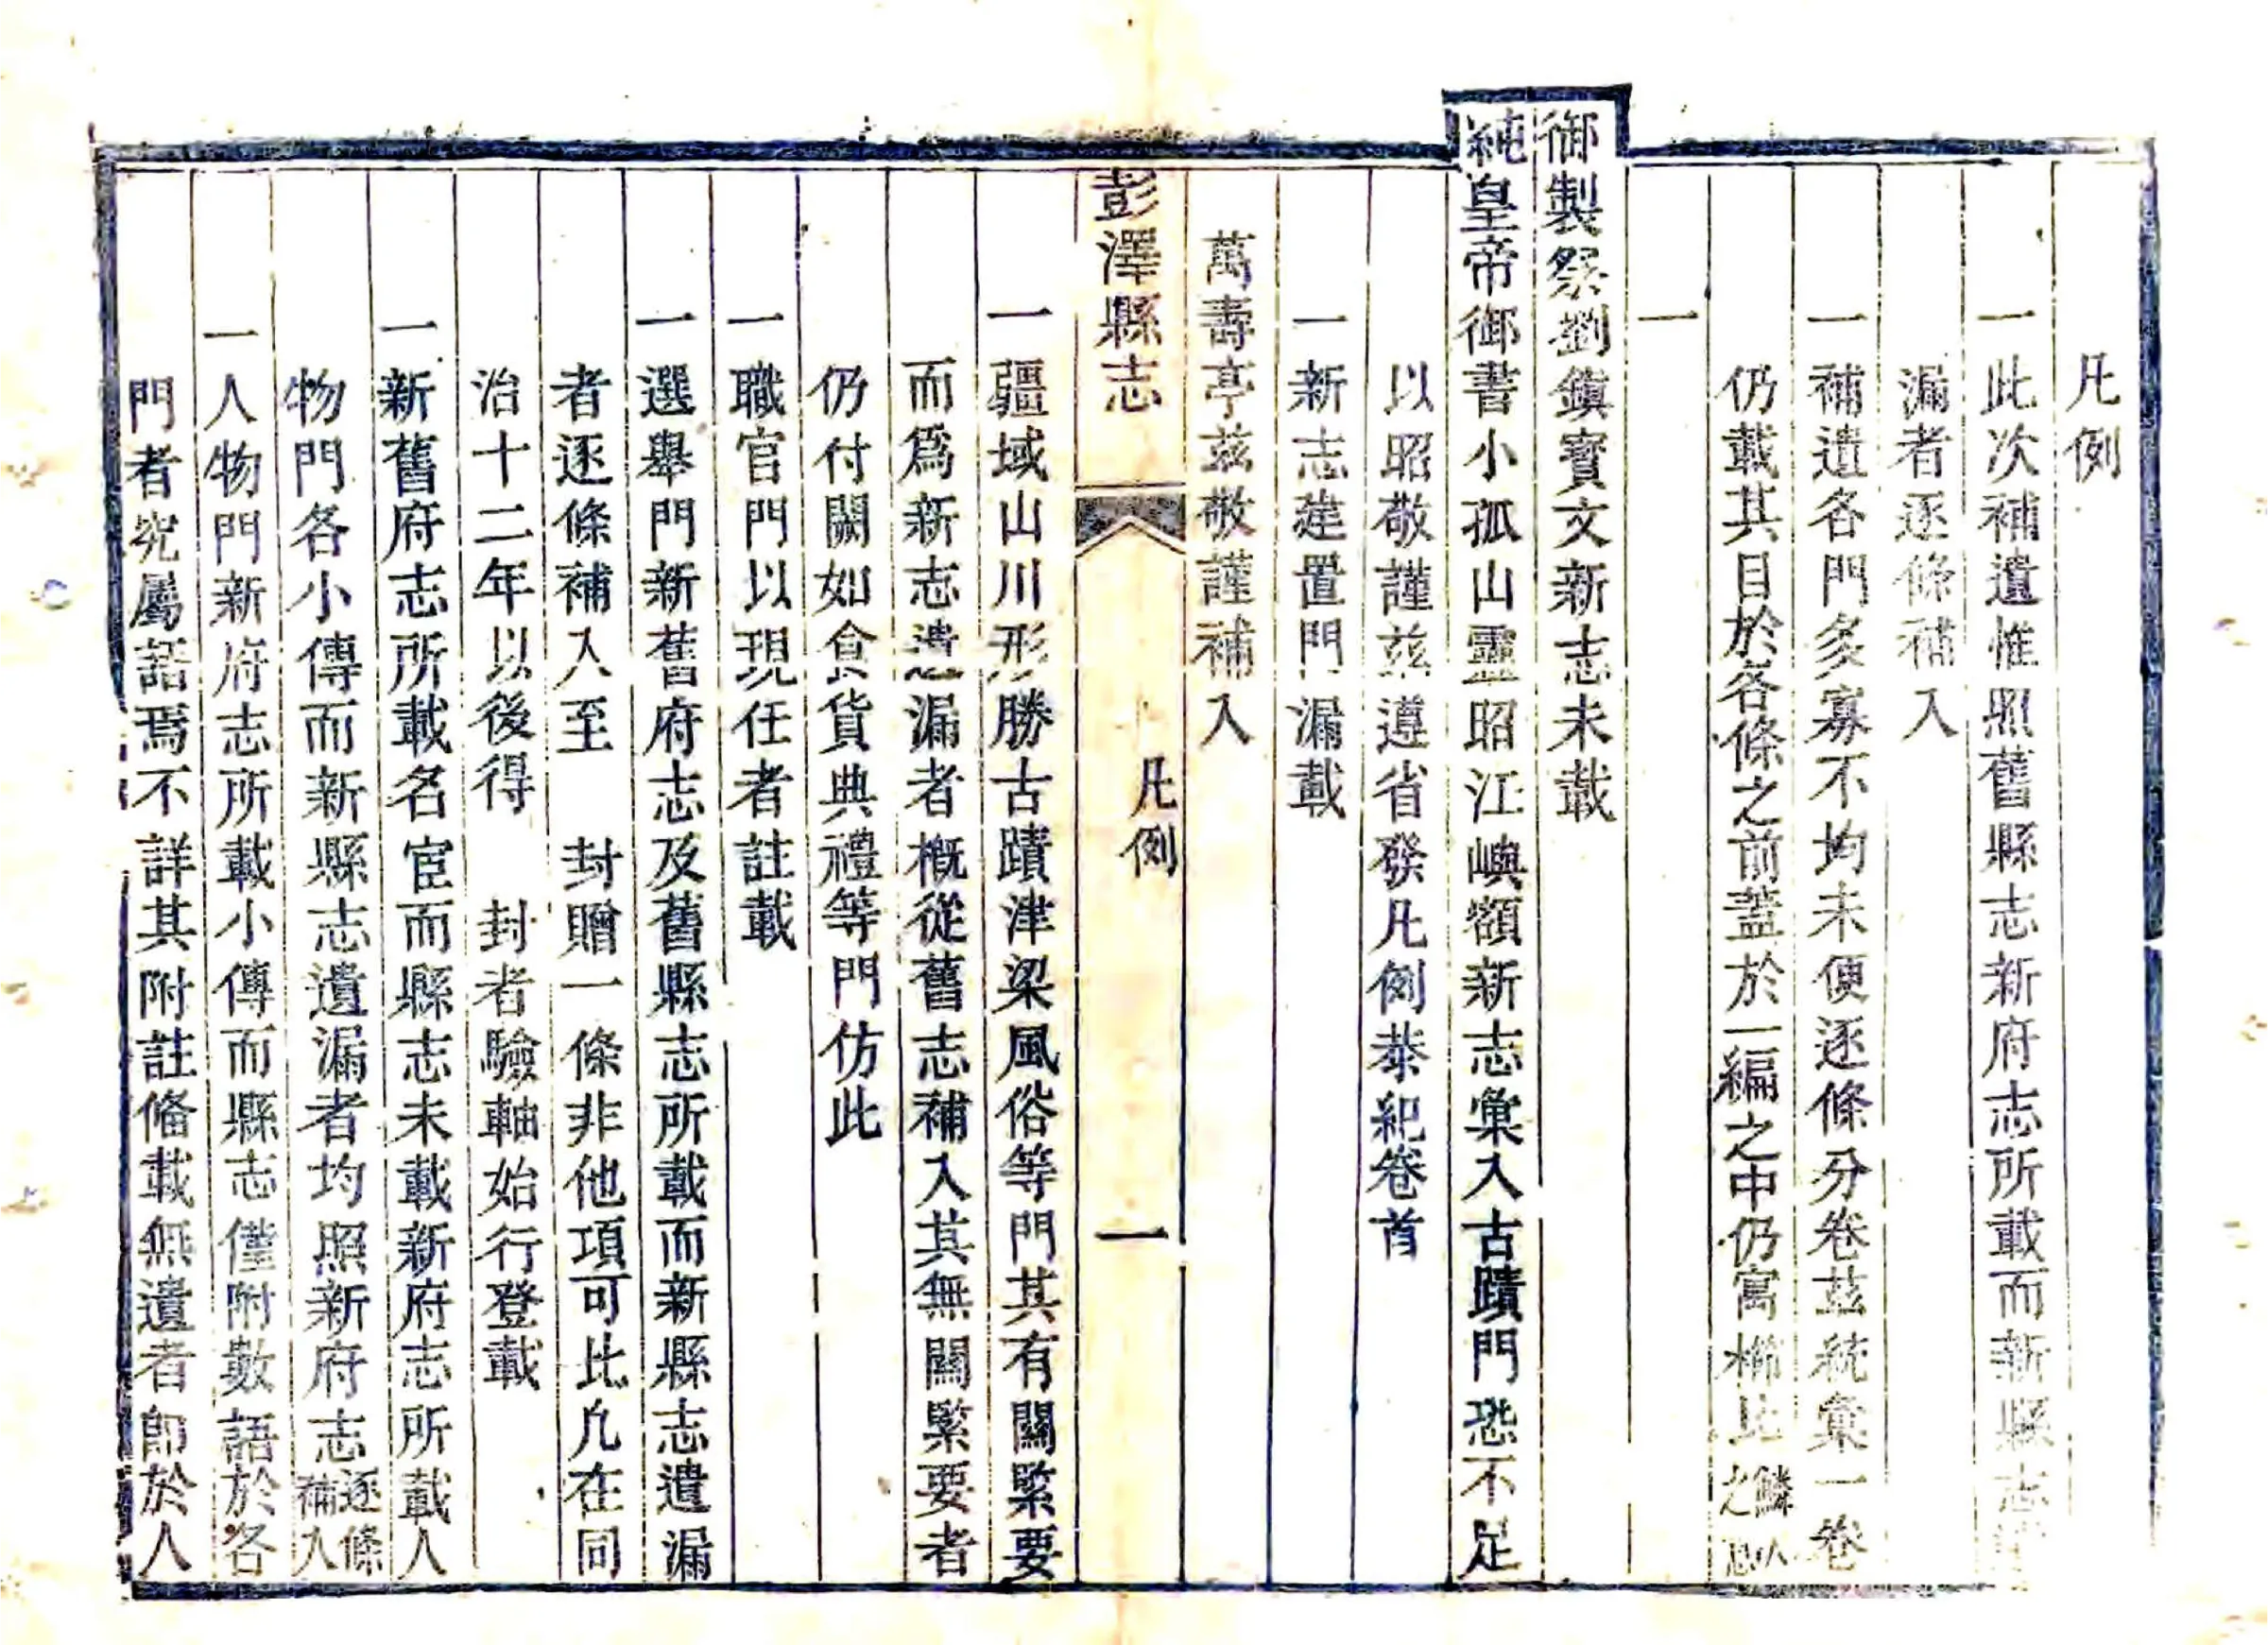 凡例
一此次補遺惟照舊縣志新府志所載而新縣志
漏者逐條補入
一補遺各門多寡不均未便逐條分卷茲統彙一卷
仍載其目於各條之前蓋於一編之中仍寓櫛比鱗次之
一
御製祭劉鎮寶文新志未載
純皇帝御書小孤山靈昭江嶼額新志彙入古蹟門恐不足
以昭敬謹茲遵省發凡例恭紀卷首
一新志建置門漏載
萬壽亭茲敬謹補入
彭澤縣志 凡例 一
一疆域山川形勝古蹟津梁風俗等門其有關緊要
而爲新志遺漏者概從舊志補入其無關緊要者
仍付闕如食貨典禮等門仿此
一職官門以現任者註載
一選舉門新舊府志及舊縣志所載而新縣志遺漏
者逐條補入至 封贈一條非他項可比凢在同
治十二年以後得 封者驗軸始行登載
一新舊府志所載名宦而縣志未載新府志所載人
物門各小傳而新縣志遺漏者均照新府志逐條補入
一人物門新府志所載小傳而縣志僅附數語於各
門者究屬語焉不詳其附註俻載無遺者卽於人